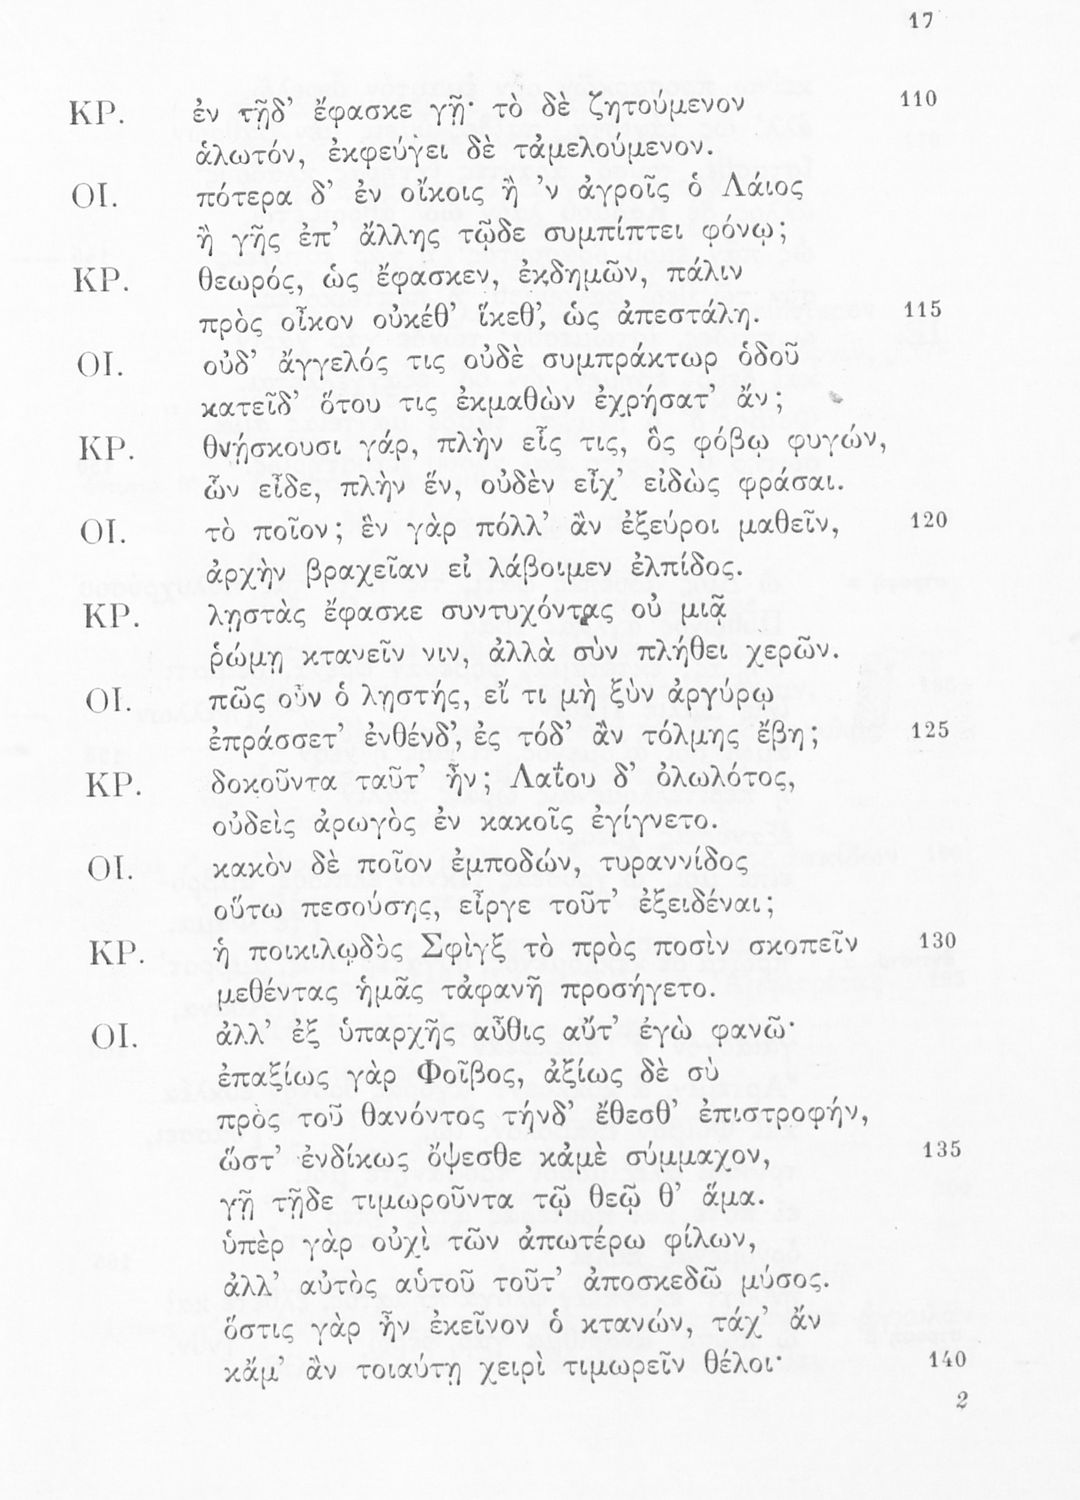 17
ΚΡ. ἐν τῇδ’ ἔφασκε γῇ· τὸ δὲ ζητούμενον 110
ἁλωτόν, ἐκφεύγει δὲ τἀμελούμενον.
ΟΙ. πότερα δ’ ἐν οἴκοις ἢ ’ν ἀγροῖς ὁ Λάιος
ἢ γῆς ἐπ’ ἄλλης τῷδε συμπίπτει φόνῳ;
ΚΡ. θεωρός, ὡς ἔφασκεν, ἐκδημῶν, πάλιν
πρὸς οἶκον οὐκέθ’ ἵκεθ’, ὡς ἀπεστάλη. 115
ΟΙ. οὐδ’ ἄγγελός τις οὐδὲ συμπράκτωρ ὁδοῦ
κατεῖδ’ ὅτου τις ἐκμαθὼν ἐχρήσατ’ ἄν;
ΚΡ. θνῄσκουσι γάρ, πλὴν εἷς τις, ὃς φόβῳ φυγών,
ὧν εἶδε, πλὴν ἕν, οὐδὲν εἶχ’ εἰδὼς φράσαι.
ΟΙ. τὸ ποῖον; ἓν γὰρ πόλλ’ ἂν ἐξεύροι μαθεῖν, 120
ἀρχὴν βραχεῖαν εἰ λάβοιμεν ἐλπίδος.
ΚΡ. λῃστὰς ἔφασκε συντυχόντας οὐ μιᾷ
ῥώμῃ κτανεῖν νιν, ἀλλὰ σὺν πλήθει χερῶν.
ΟΙ. πῶς οὖν ὁ λῃστής, εἴ τι μὴ ξὺν ἀργύρῳ
ἐπράσσετ’ ἐνθένδ’, ἐς τόδ’ ἂν τόλμης ἔβη; 125
ΚΡ. δοκοῦντα ταῦτ’ ἦν; Λαΐου δ’ ὀλωλότος,
οὐδεὶς ἀρωγὸς ἐν κακοῖς ἐγίγνετο.
ΟΙ. κακὸν δὲ ποῖον ἐμποδών, τυραννίδος
οὕτω πεσούσης, εἶργε τοῦτ’ ἐξειδέναι;
ΚΡ. ἡ ποικιλῳδὸς Σφὶγξ τὸ πρὸς ποσὶν σκοπεῖν 130
μεθέντας ἡμᾶς τἀφανῆ προσήγετο.
ΟΙ. ἀλλ’ ἐξ ὑπαρχῆς αὖθις αὔτ’ ἐγὼ φανῶ·
ἐπαξίως γὰρ Φοῖβος, ἀξίως δὲ σὺ
πρὸς τοῦ θανόντος τήνδ’ ἔθεσθ’ ἐπιστροφήν,
ὥστ’ ἐνδίκως ὄψεσθε κἀμὲ σύμμαχον, 135
γῇ τῇδε τιμωροῦντα τῷ θεῷ θ’ ἅμα.
ὑπὲρ γὰρ οὐχὶ τῶν ἀπωτέρω φίλων,
ἀλλ’ αὐτὸς αὑτοῦ τοῦτ’ ἀποσκεδῶ μύσος.
ὅστις γὰρ ἦν ἐκεῖνον ὁ κτανών, τάχ’ ἄν
κἄμ’ ἂν τοιαύτῃ χειρὶ τιμωρεῖν θέλοι· 140
2